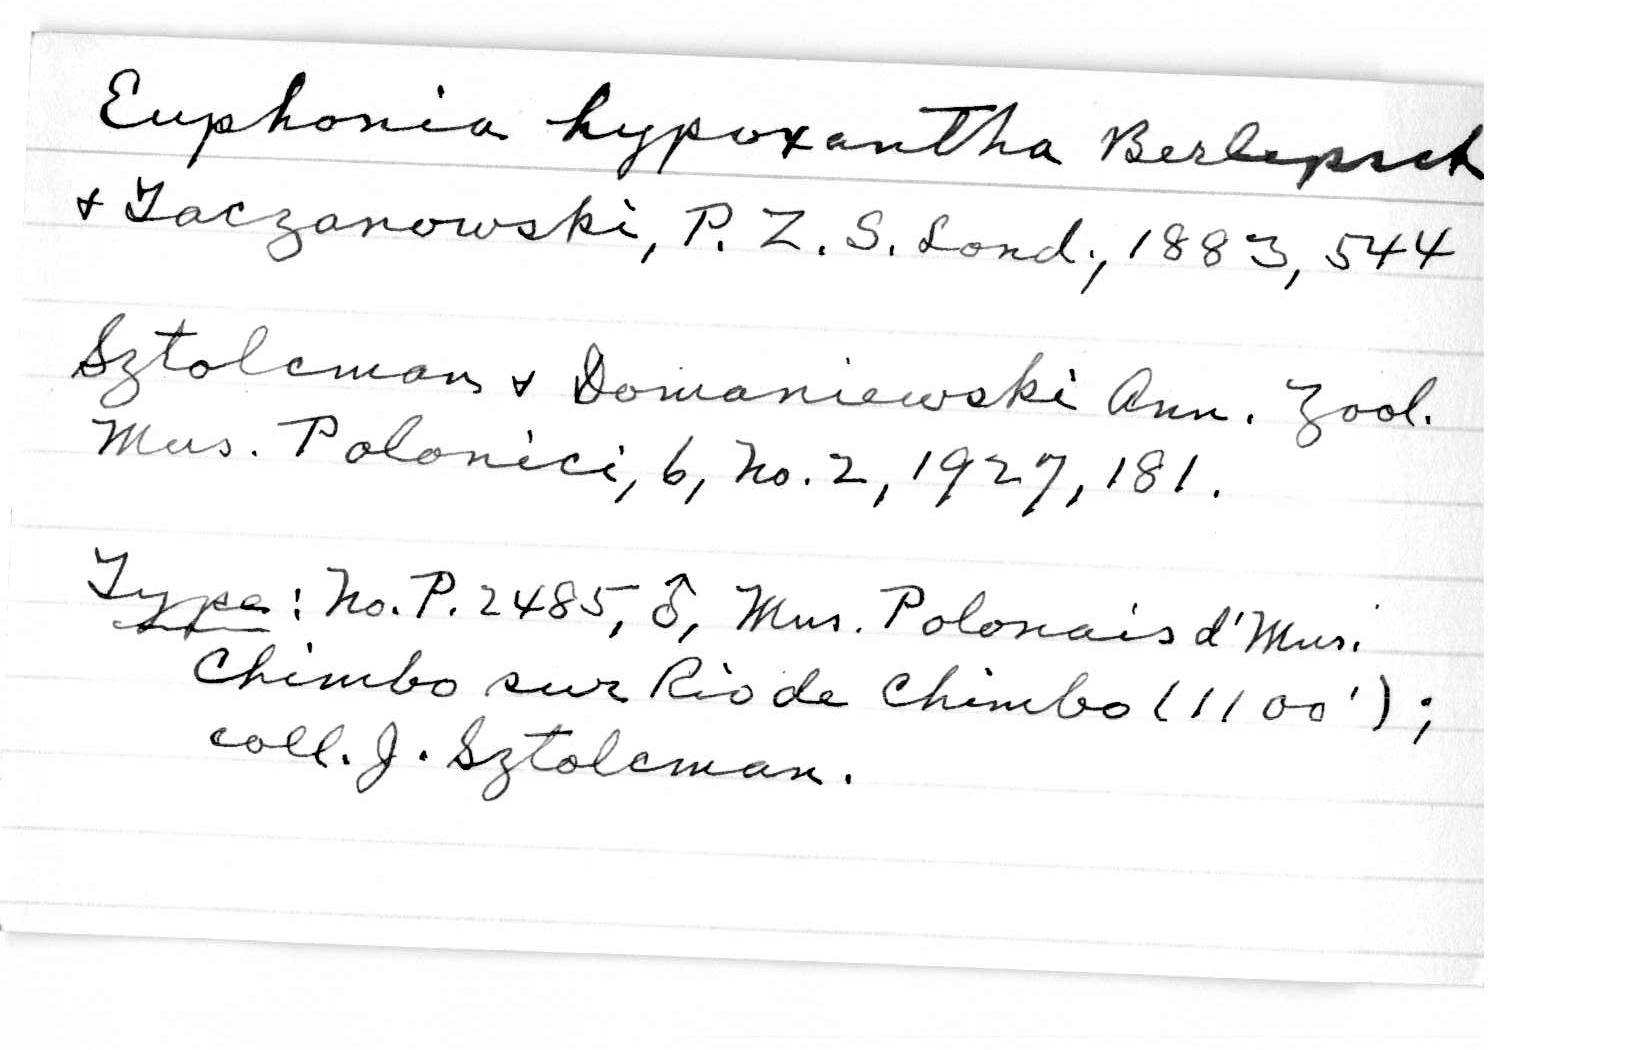 Euphonia hypoxantha Berlepsch
& Taczanowski, P. Z. S. Lond., 1883, 544
Sztolcman & Domaniewski Ann. Zool.
Mus. Polonici, 6, No. 2, 1927, 181.
Type: No. P. 2485, ♂, Mus. Polonais d'Mus.
Chimbo sur Rio de Chimbo (1100');
coll. J. Sztolcman.